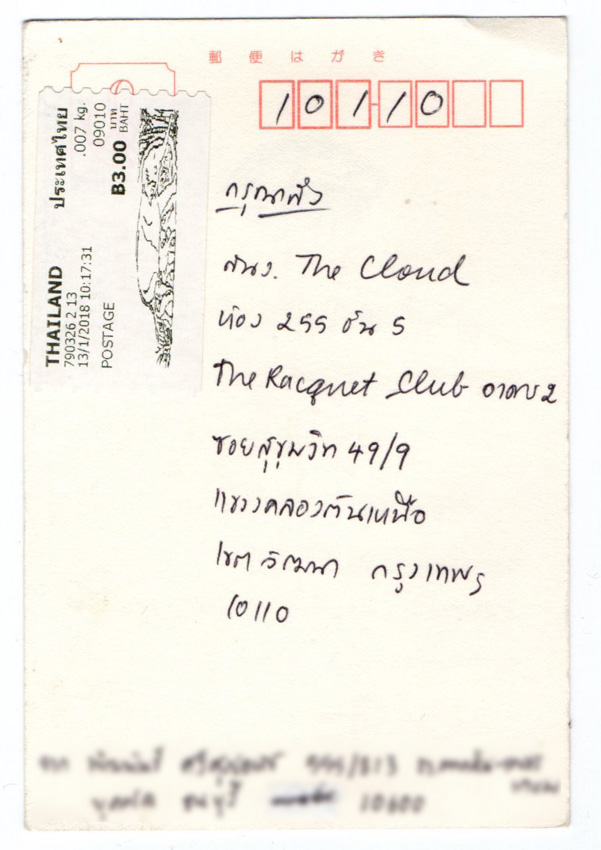 郵便はがき
101-10
ประเทศไทย
.007 kg.
09010
บาท
฿3.00 BAHT
THAILAND
790326 2 13
13/1/2018 10:17:31
POSTAGE
กรุณาส่ง
สนง. The Cloud
ห้อง 255 ชั้น 5
The Racquet Club อาคาร 2
ซอยสุขุมวิท 49/9
แขวงคลองตันเหนือ
เขตวัฒนา กรุงเทพฯ
10110
10600